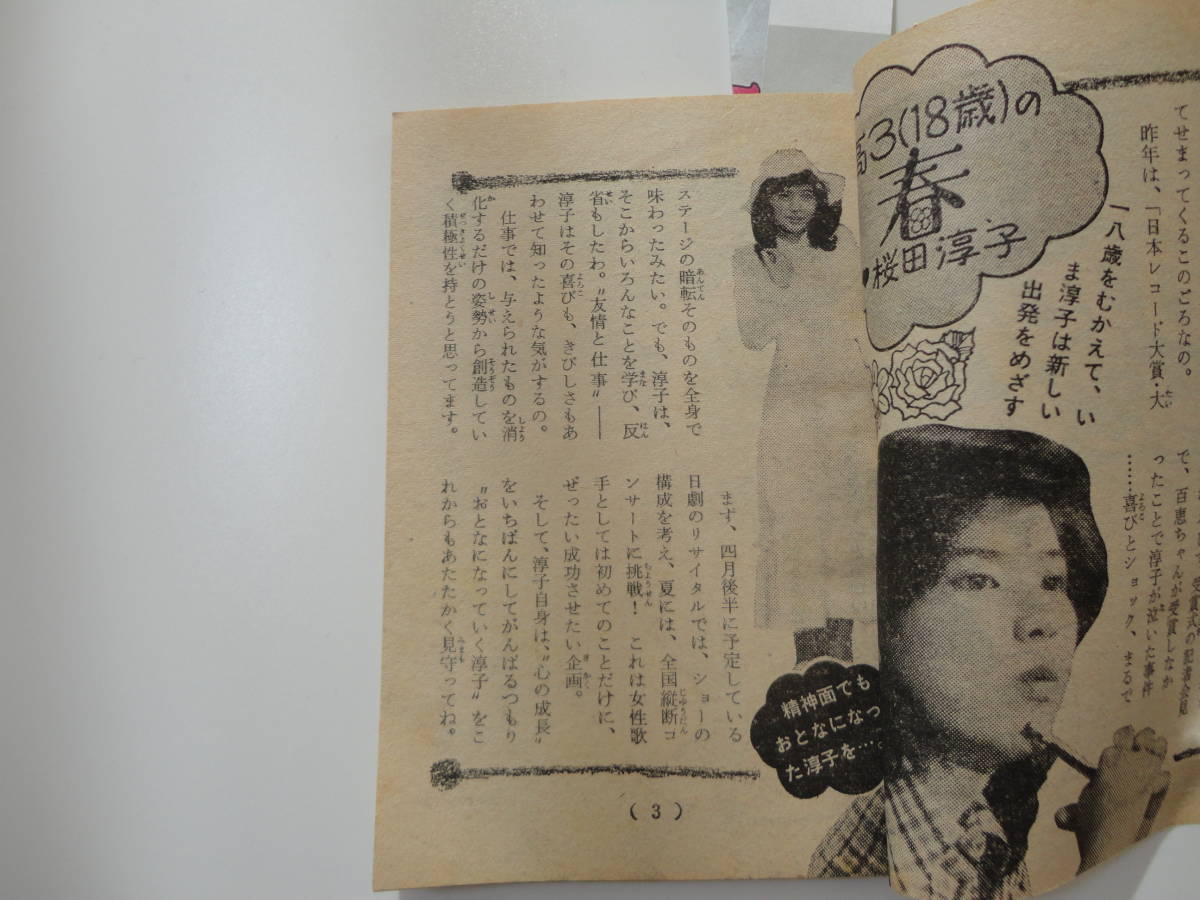 てせまってくるこのごろなの。
昨年は、「日本レコード大賞・大
高3(18歳)の
春
桜田淳子
一八歳をむかえて、い
ま淳子は新しい
出発をめざす
受賞式の記者会見
で、百恵ちゃんが受賞しなか
ったことで淳子が泣いた事件
……喜びとショック、まるで
ステージの暗転そのものを全身で
味わったみたい。でも、淳子は、
そこからいろんなことを学び、反
省もしたわ。〝友情と仕事〟――
淳子はその喜びも、きびしさもあ
わせて知ったような気がするの。
仕事では、与えられたものを消
化するだけの姿勢から創造してい
く積極性を持とうと思ってます。
まず、四月後半に予定している
日劇のリサイタルでは、ショーの
構成を考え、夏には、全国縦断コ
ンサートに挑戦！　これは女性歌
手としては初めてのことだけに、
ぜったい成功させたい企画。
そして、淳子自身は、〝心の成長〟
をいちばんにしてがんばるつもり
〝おとなになっていく淳子〟をこ
れからもあたたかく見守ってね。
精神面でも
おとなになっ
た淳子を…。
(3)